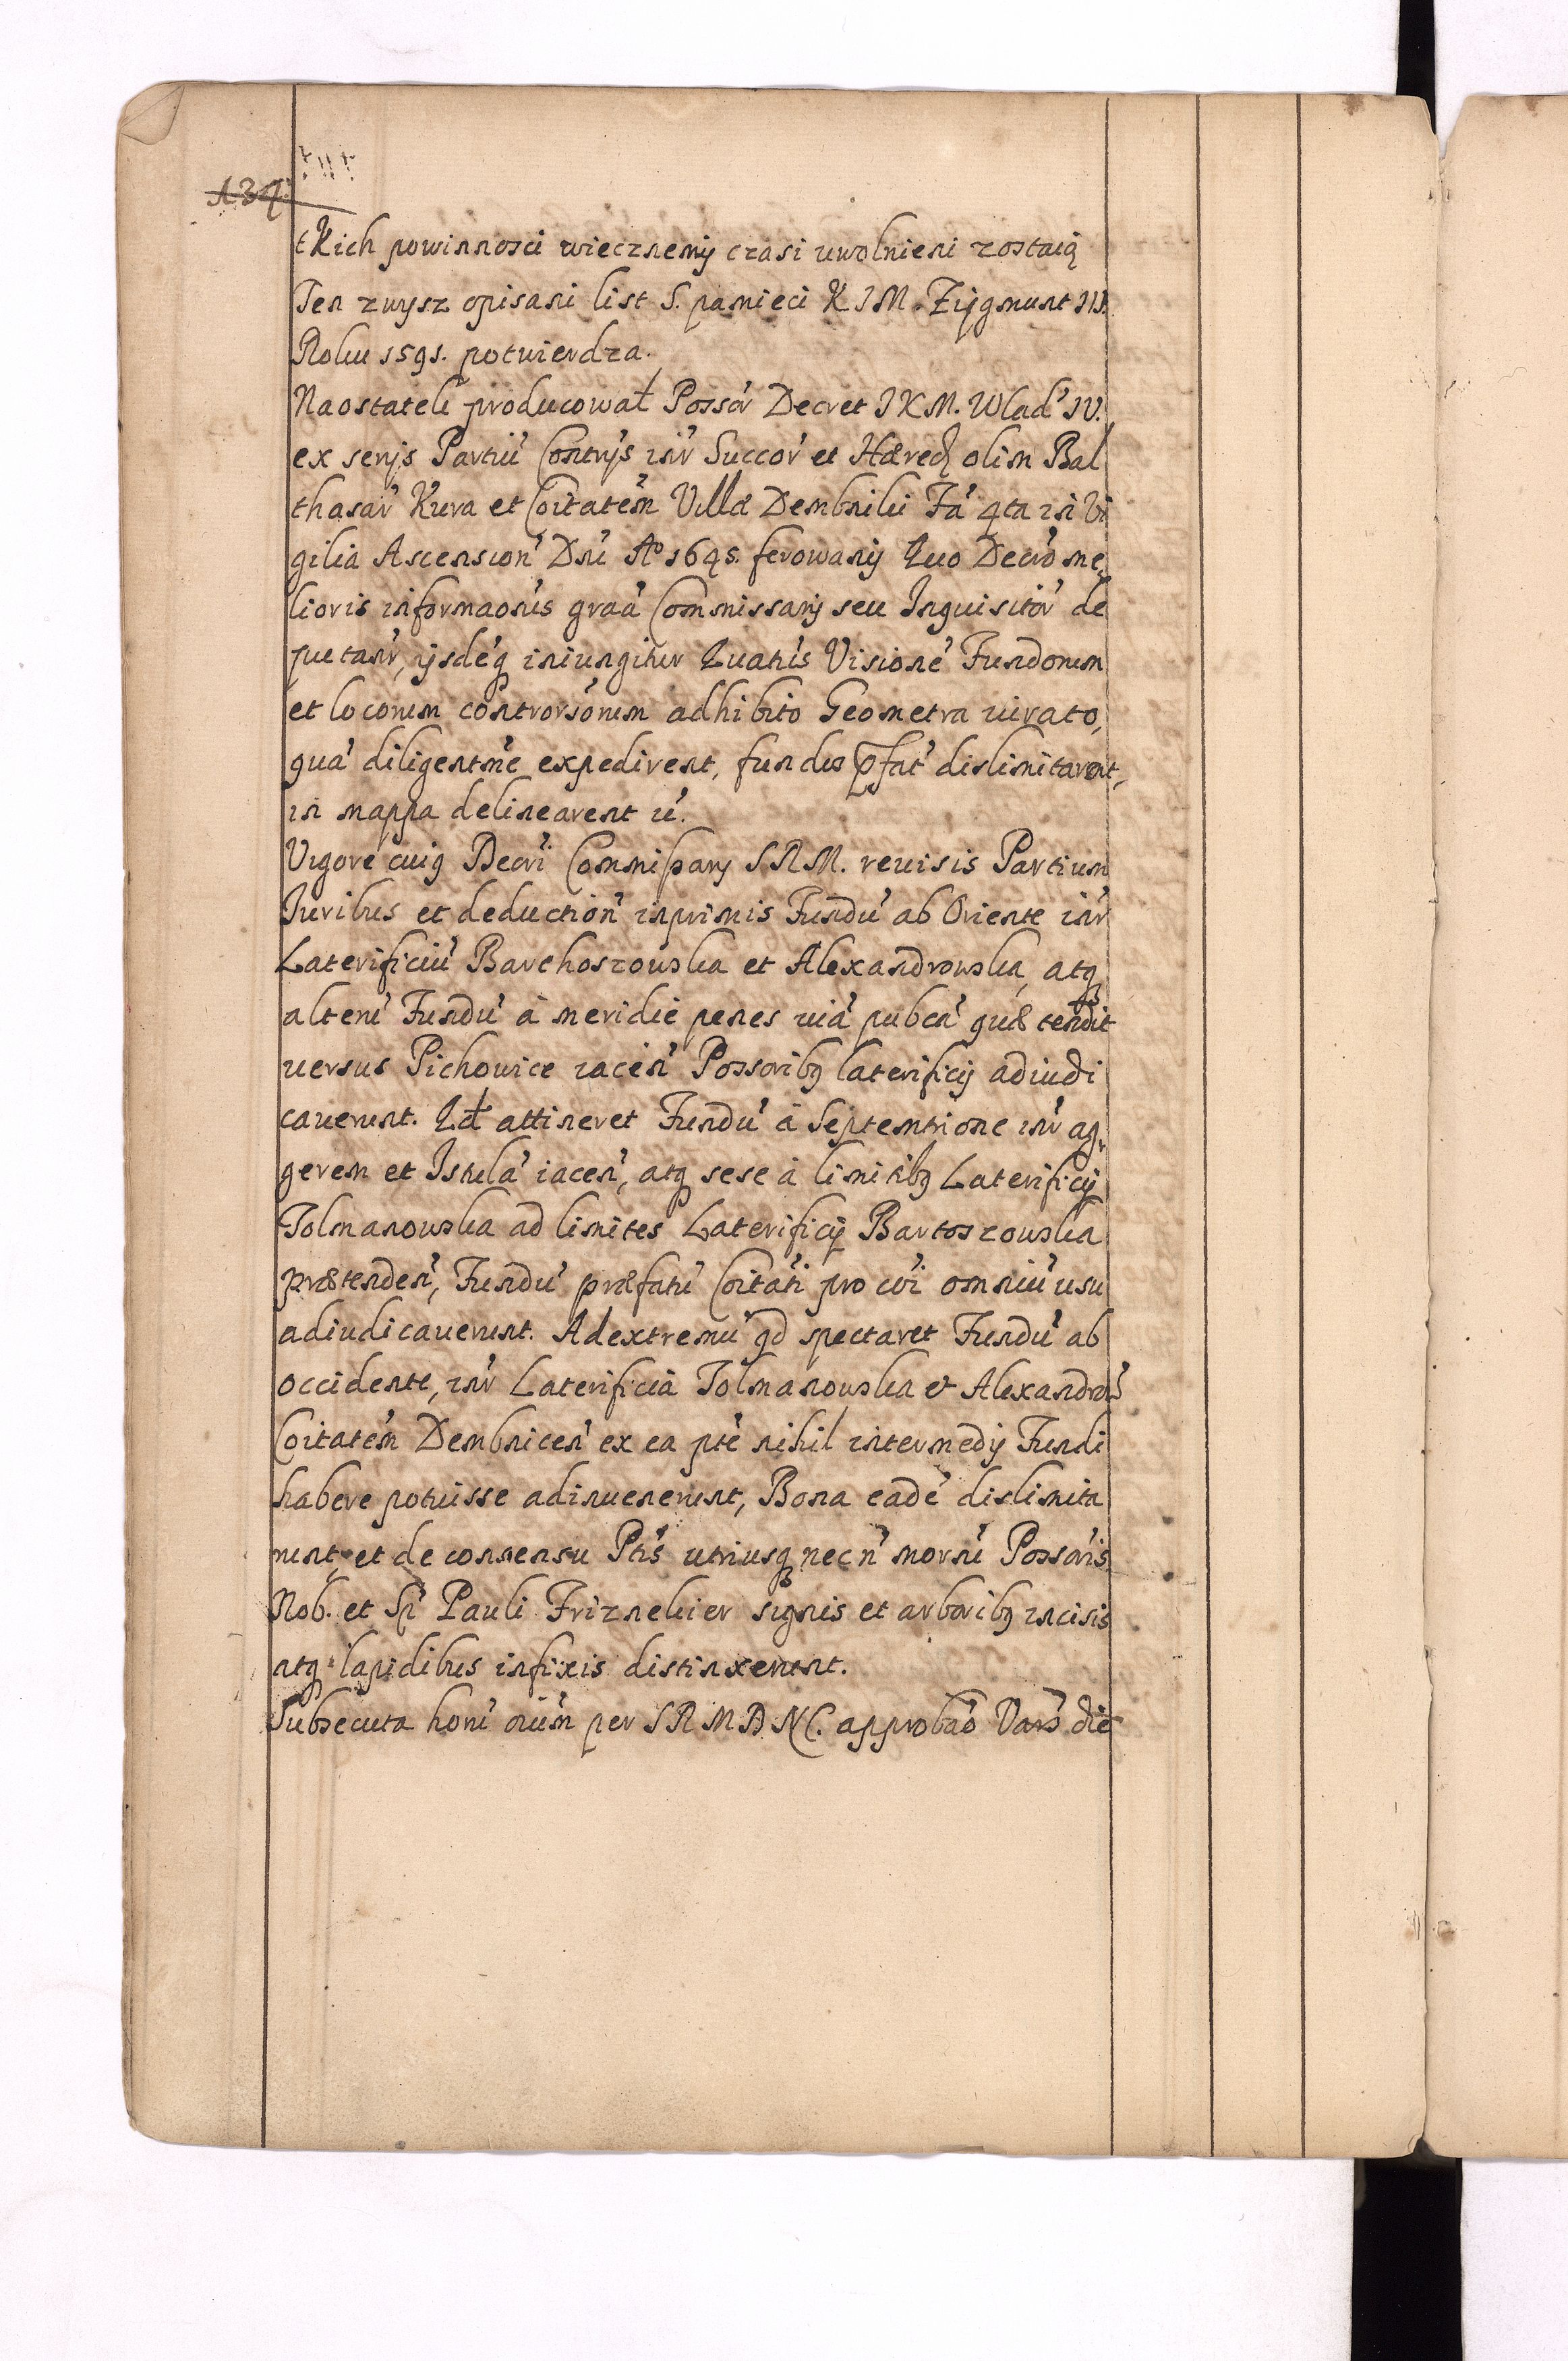 134
tkich powinnosci wiecznemy czasi uwolnieni zostaią
Ten zwysz opisani list S. pamieci K J M. Zygmunt III.
Roku 1591. potwierdza.
Naostatek producował Possor̃ Decret J K M. Wlad' IV.
ex serijs Partiu' Contrijs int̃r Succor' et Hæred olim Bal
thasar' Kura et Coitatem' Villæ Dembniki Fa' 4ta in Vi
gilia Ascension' Dni' Ao 1645. ferowany Quo Decr̃o me,
lioris informaonis' graa' Commissarij seu Inquisitor' de
putant̃r, ijsdeq' iniungitur Quatus' Visione' Fundorum
et locorum controrsorum' adhibito Geometra iurato,
qua' diligentme' expedirent, fundos pfat' dislimitarent,
in mappa delinearent u'.
Vigore cuiq Decri' Commissarij S R M. reuisis Partium
Juribus et deduction' inprimis Fundu' ab Oriente int̃r
Laterificiu' Barchoszowska et Alexandrowska, atq
alteru' Fundu' à meridie penes uia' pubca' quæ tendit
uersus Pichowice iacen' Possoribq laterificij adiudi
cauerunt. Qd attineret Fundu' à Septemtrione int̃r ag,
gerem et Istula' iacen', atq sese à limitibq Laterificij
Tolmanowska ad limites Laterificij Bartoszowska
prætenden', Fundu' præfatu' Coitati' pro coi' omniu' usu
adiudicauerunt. Adextremu' qd spectaret Fundu' ab
occidente, int̃r Laterificia Tolmanowska et Alexandrow'
Coitatem' Dembnicen' ex ea pte' nihil intermedij Fundi
habere potuisse adinuenerunt, Bona eade' dislimita
runt, et de consensu Ptis' utriusq necn' morni' Possoris'
Nob. et Sp' Pauli Frizneker signis et arboribq incisis
atq lapidibus infixis distinxerunt.
Subsecuta horu' oium' per S R M D N C. approbao' Vars' die